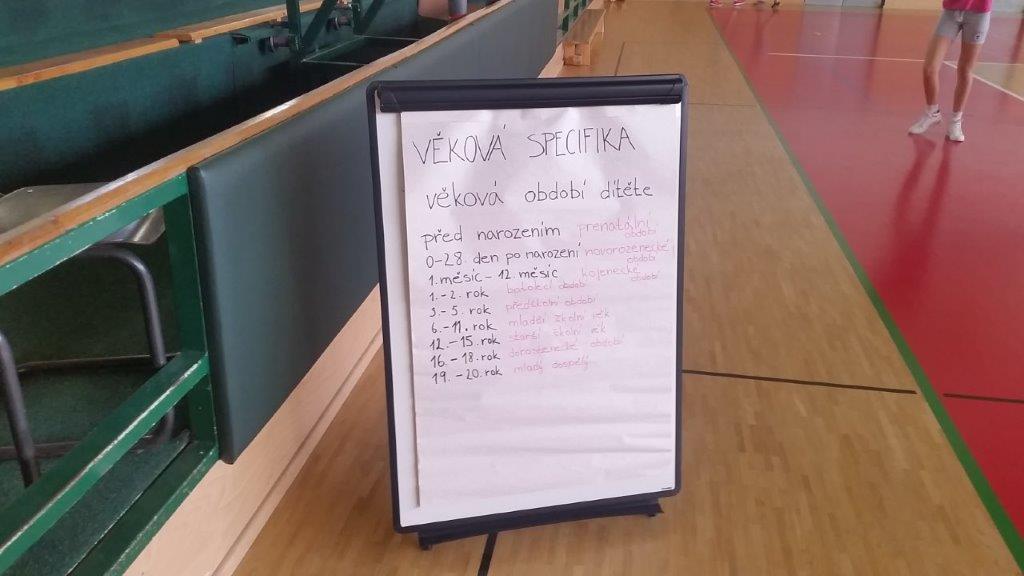 VĚKOVÁ SPECIFIKA
věková období dítěte
před narozením prenatální období
0-28. den po narození novorozenecké období
1. měsíc - 12. měsíc kojenecké období
1. - 2. rok batolecí období
3. - 5. rok předškolní období
6. - 11. rok mladší školní věk
12. - 15. rok starší školní věk
16. - 18. rok dorostenecké období
19. - 20. rok mladý dospělý